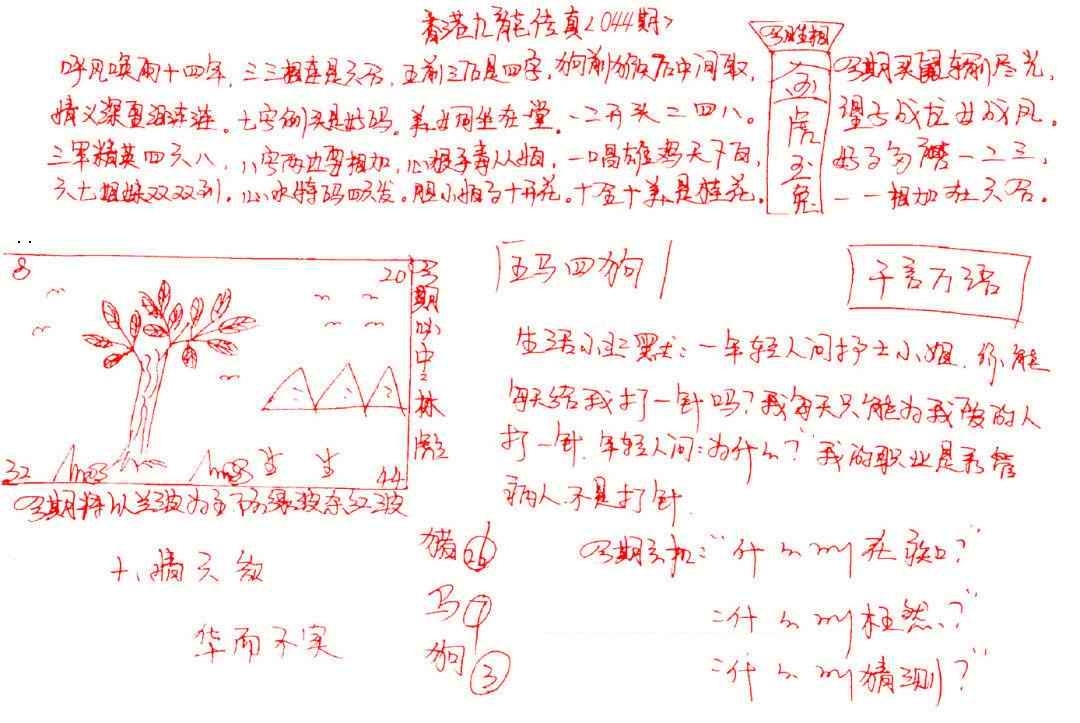 香港九龍传真<044期>
呼风唤雨十四年，三三相连是六合，五前三后是四字，狗前狗后中间取，
情义深 连连。七字例头是好码。美女同坐在堂。一二开头二四八。
三军精英四六八，八字两边要相加，心狠手毒从烟，一唱雄鸡天下白，
六七姐妹双双到，心水特码四头发。胆小 十开花。十五十美是桂花。
今期生相
金
虎
玉
兔
今期买鼠 尽光，
望子成龙女成凤。
好事多磨一二三，
一一相加在六合。
8
20
32
44
今期必中
林
彪
今期特以兰波为主下防绿波杂红波
五马四狗
千言万语
生活小幽默：一年轻人问护士小姐，你能
每天给我打一针吗？我每天只能为我爱的人
打一针，年轻人问：为什么？我的职业是看管
病人不是打针
十、情六欲
华而不实
猪 26
马 7
狗 3
今期玄机："什么叫在 ？"
"什么叫枉然？"
"什么叫猜测？"